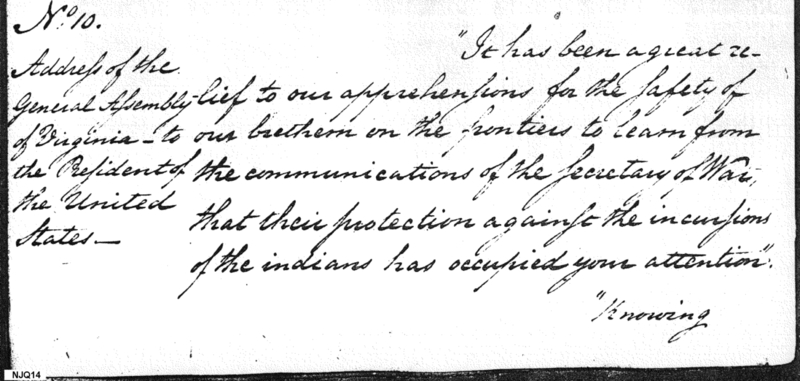 No. 10.
Address of the
General Assembly
of Virginia - to
the President of
the United
States -
"It has" been a great re-
lief to our apprehensions for the safety of
our brethern on the frontiers to learn from
the communications of the Secretary of War,
that their protection against the incursions
of the indians has occupied your attention".
"Knowing
NJQ14